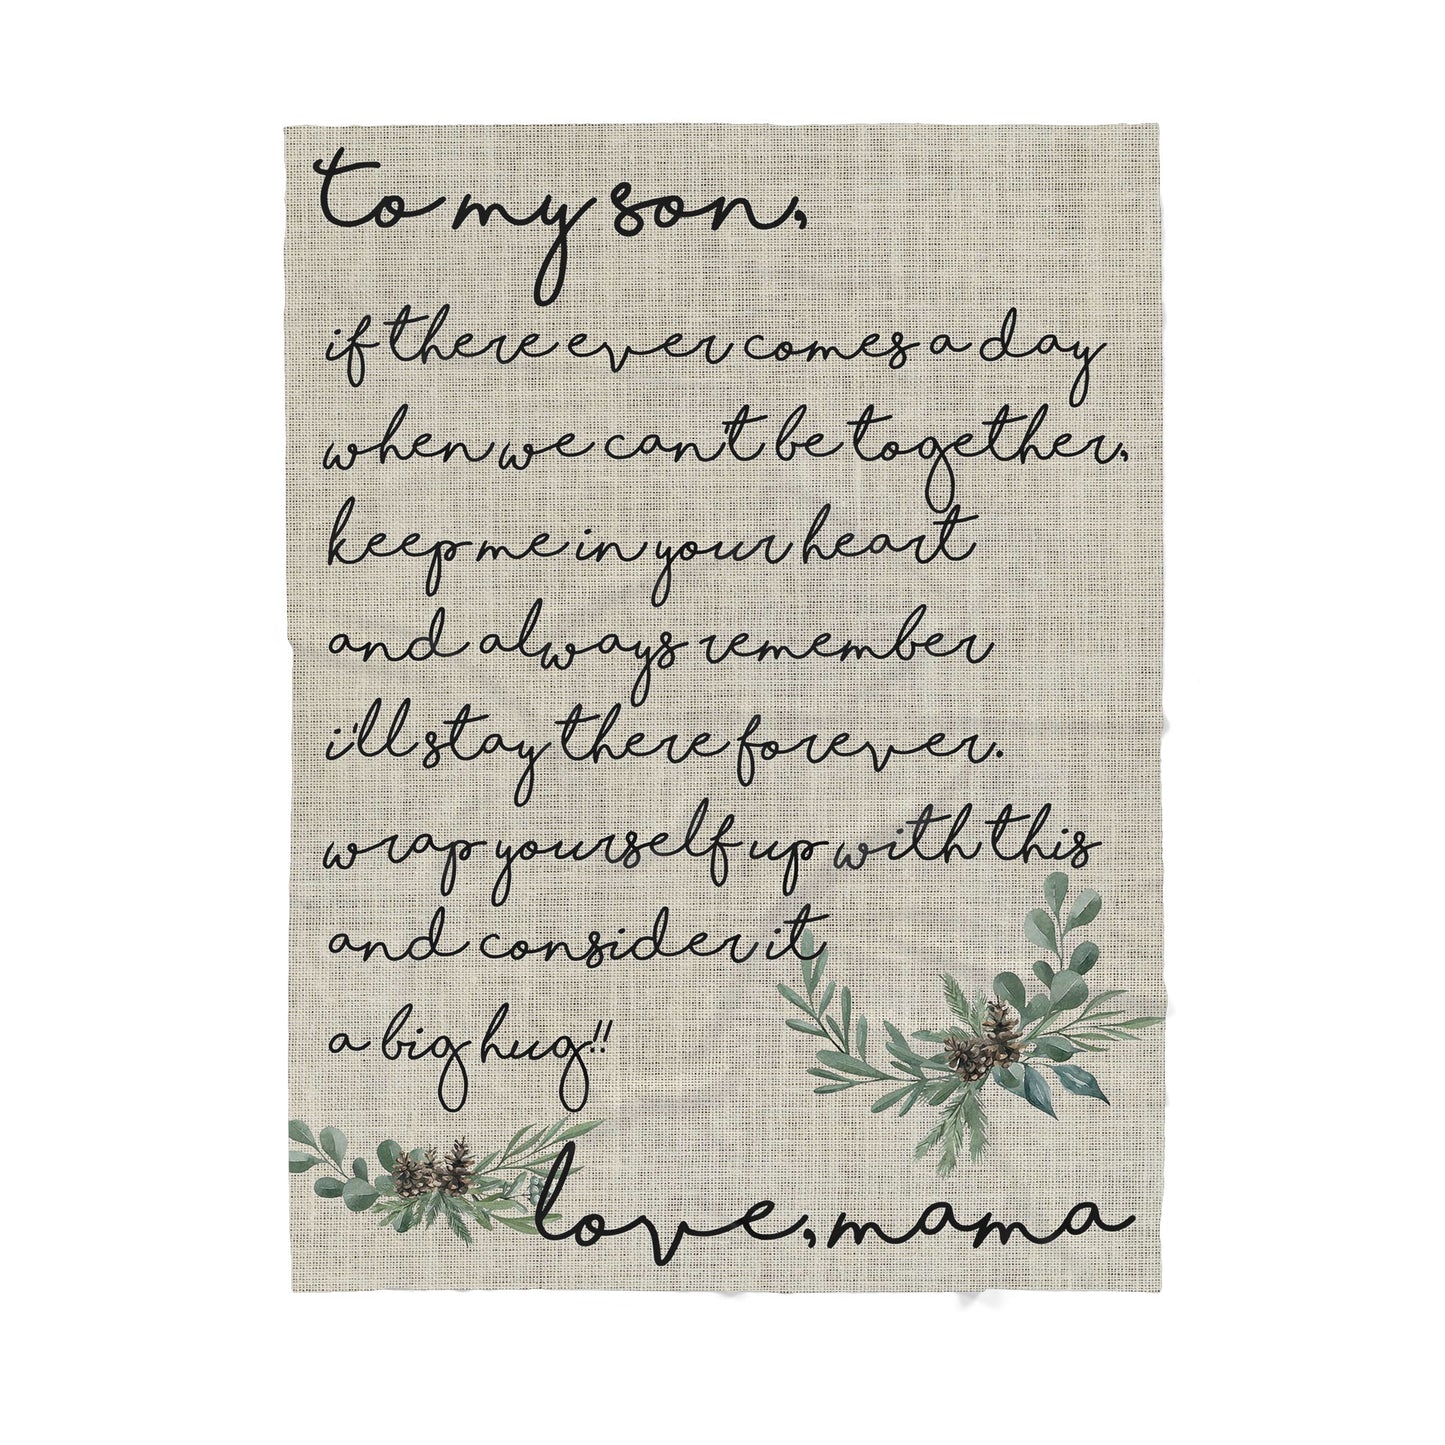 to my son,
if there ever comes a day
when we can't be together,
keep me in your heart
and always remember
i'll stay there forever.
wrap yourself up with this
and consider it
a big hug!!
love, mama